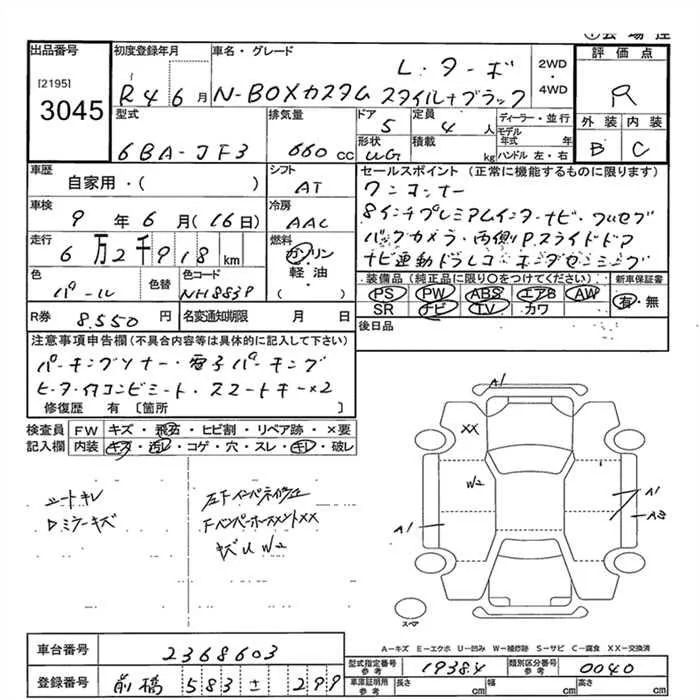 出品番号 初度登録年月 車名・グレード 2WD・4WD 評価点
[2195]
3045
R4 6月 N-BOXカスタム L・ターボ スタイル+ブラック
R
型式 排気量 ドア 定員 ディーラー・並行 外装 内装
6BA-JF3 660cc 5 4人 モデル年式 年
形状 積載 kg ハンドル 左・右 B C
UG
車歴 シフト セールスポイント(正常に機能するものに限ります)
自家用・( ) AT ワンオーナー
車検 冷房 8インチプレミアムインターナビ・フルセグ
9年6月(16日) AAC バックカメラ・両側Pスライドドア
走行 燃料 ナビ連動ドラレコ ホンダセンシング
6万2千918km ガソリン・軽油・( )
色 色替 色コード 装備品(純正品に限り○をつけてください) 新車保証書
パール NH883P PS PW ABS エアB AW 有・無
SR ナビ TV カワ
R券 8,550円 名変通知期限 月 日 後日品
注意事項申告欄(不具合内容等は具体的に記入して下さい)
パーキングソナー・電子パーキング
ヒーター付コンビシート・スマートキー×2
修復歴 有〔箇所 〕
検査員記入欄 FW キズ・飛石・ヒビ割・リペア跡・×要
内装 キズ・汚レ・コゲ・穴・スレ・キレ・破レ
シートキレ
Dミラーキズ
キズU W2
A1
XX
W2
A1
A1
A3
スペア
A-キズ E-エクボ U-凹み W-補修跡 S-サビ C-腐食 XX-交換済
車台番号 2368603
型式指定番号 参考 19384 類別区分番号 参考 0040
登録番号 前橋 583 に 299
車庫証明用 参考 長さ cm 幅 cm 高さ cm